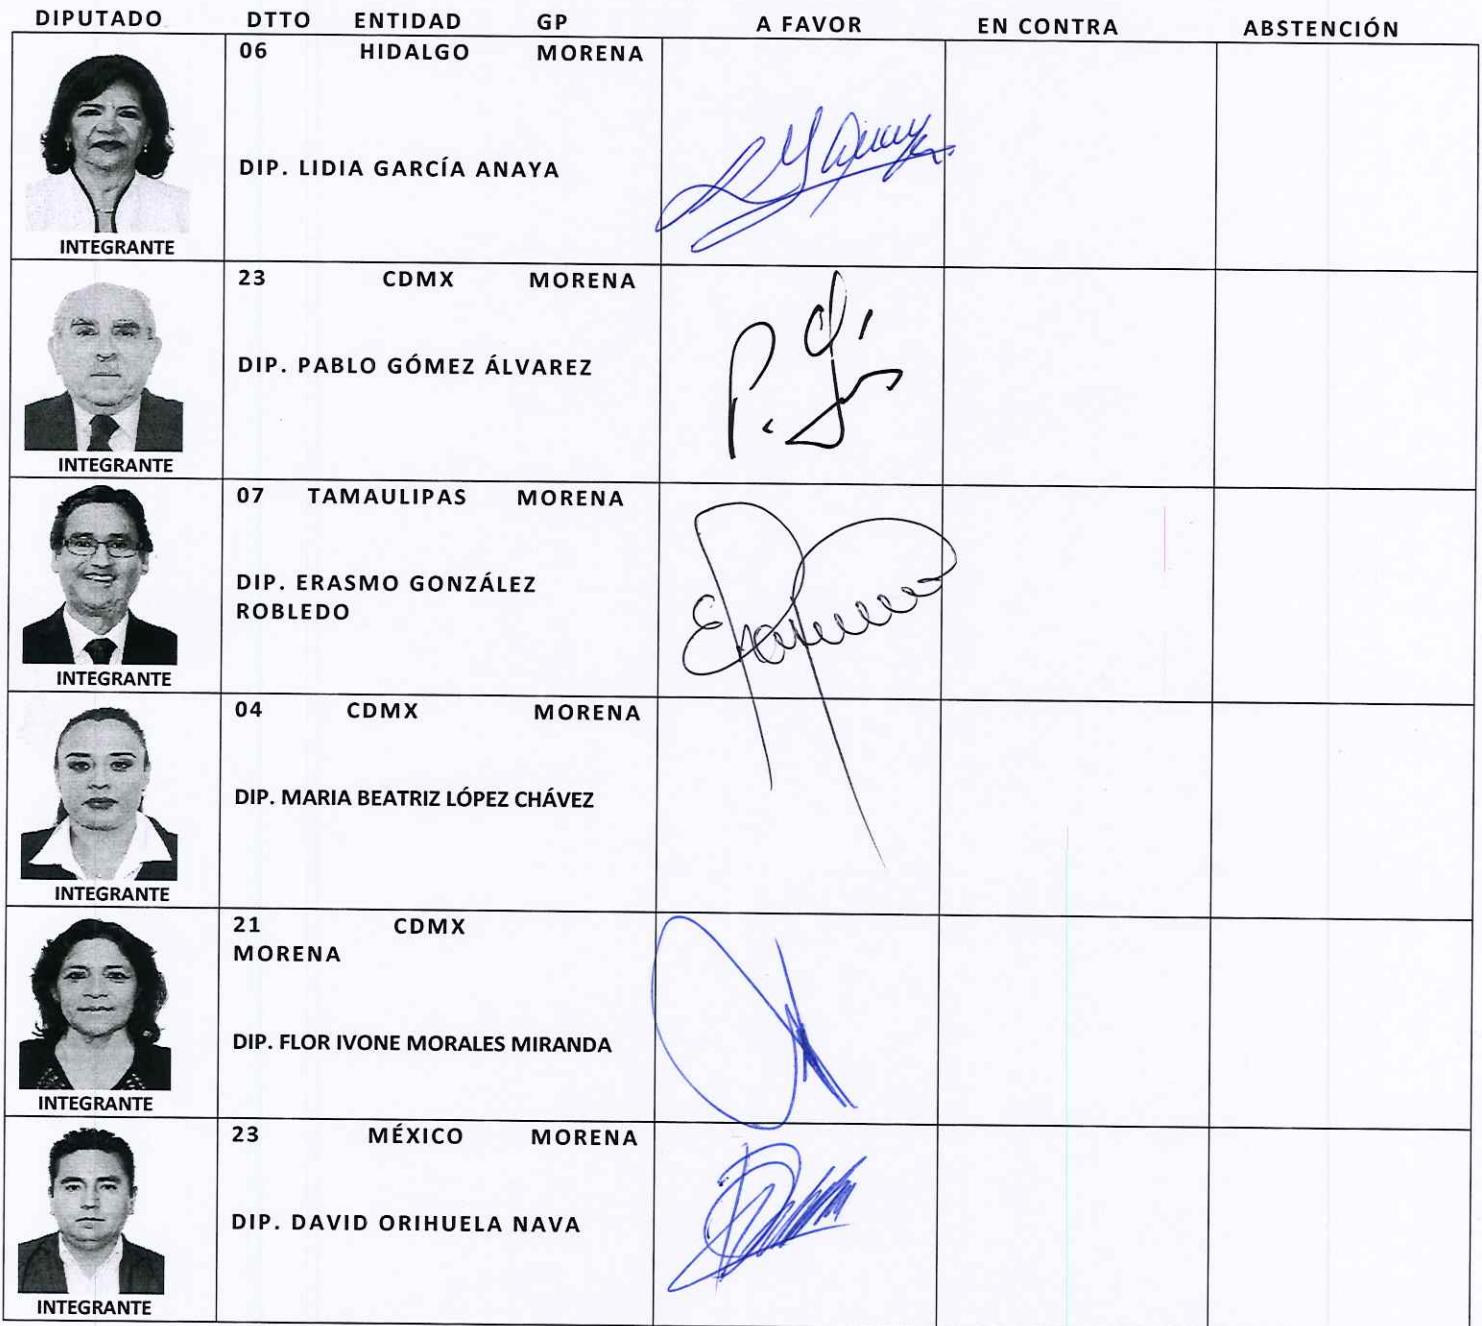 DIPUTADO DTTO ENTIDAD GP A FAVOR EN CONTRA ABSTENCIÓN
06 HIDALGO MORENA
DIP. LIDIA GARCÍA ANAYA
INTEGRANTE
23 CDMX MORENA
DIP. PABLO GÓMEZ ÁLVAREZ
INTEGRANTE
07 TAMAULIPAS MORENA
DIP. ERASMO GONZÁLEZ
ROBLEDO
INTEGRANTE
04 CDMX MORENA
DIP. MARIA BEATRIZ LÓPEZ CHÁVEZ
INTEGRANTE
21 CDMX
MORENA
DIP. FLOR IVONE MORALES MIRANDA
INTEGRANTE
23 MÉXICO MORENA
DIP. DAVID ORIHUELA NAVA
INTEGRANTE